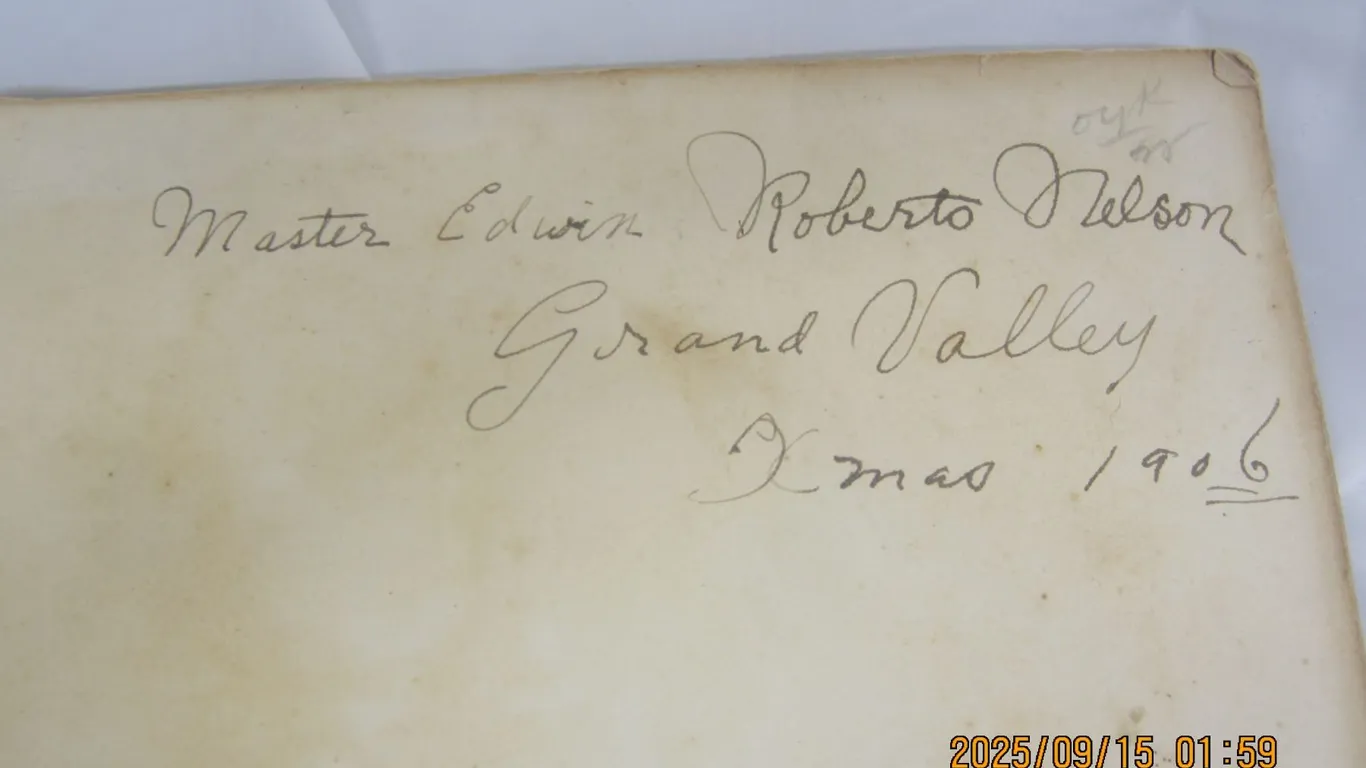 Master Edwin Roberts Nelson
Grand Valley
Xmas 1906
2025/09/15 01:59